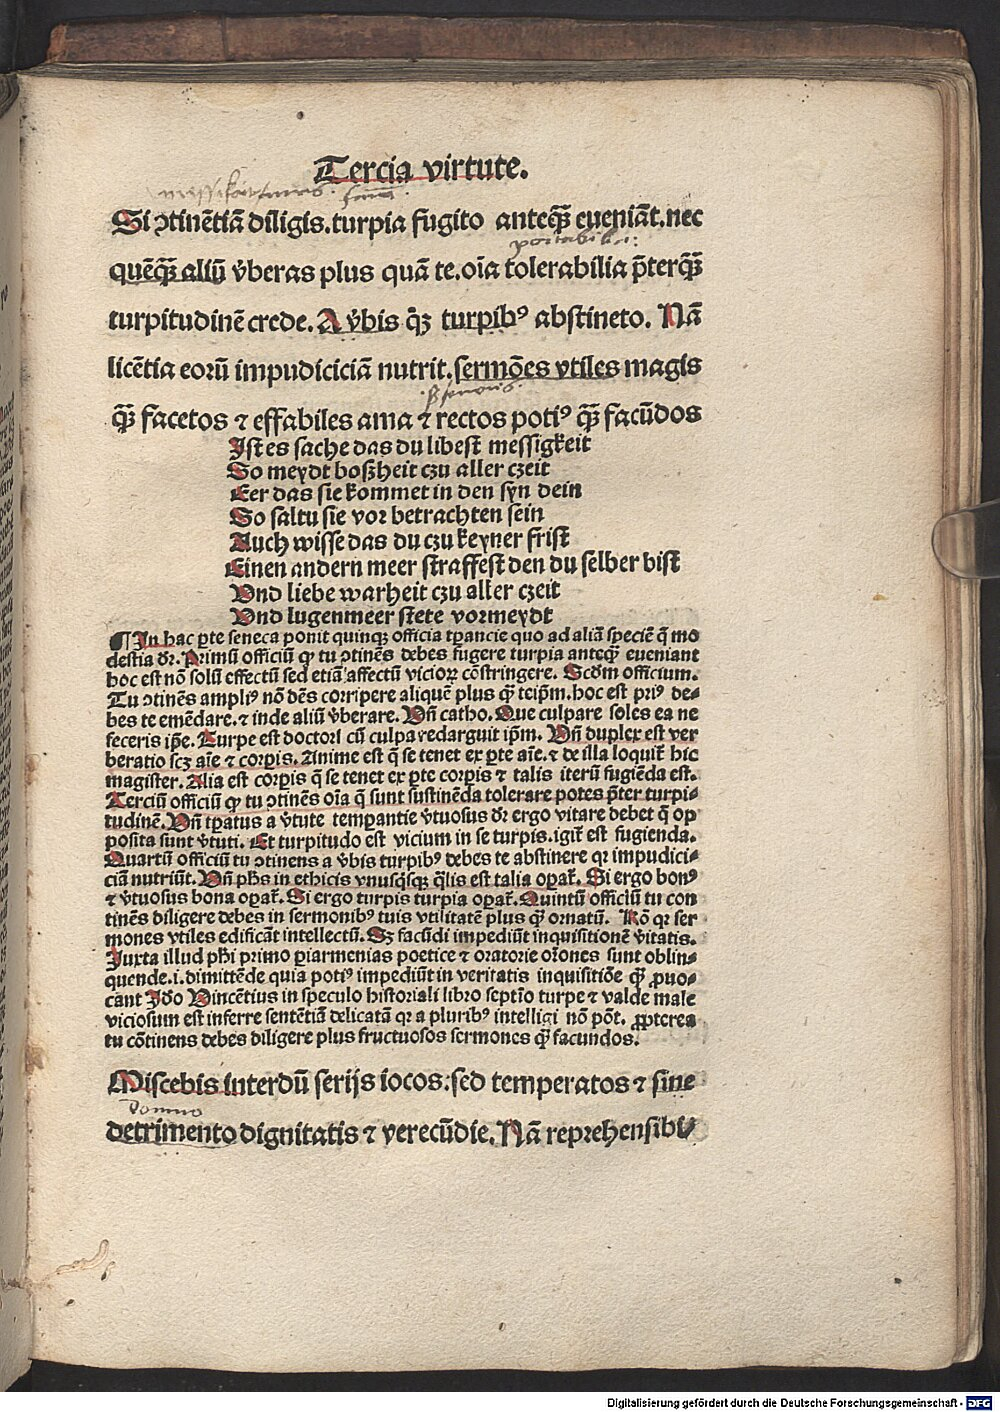 Tercia virtute.
Si ↄtinẽtiã diligis.turpia fugito anteq̃ȝ eueniãt.nec
portabilia:
quẽq̃ȝ aliũ v̾beras plus quã te.oĩa tolerabilia p̃terq̃ȝ
turpitudinẽ crede. A v̾bis q̊ȝ turpibꝰ abstineto. Nã
licẽtia eorũ impudiciciã nutrit.sermões vtiles magis
q̃ȝ facetos ⁊ effabiles ama ⁊ rectos potiꝰ q̃ȝ facũdos
Ist es sache das du libest messigkeit
So meydt boßheit czu aller czeit
Eer das sie kommet in den syn dein
So saltu sie vor betrachten sein
Auch wisse das du czu keyner frist
Einen andern meer straffest den du selber bist
Vnd liebe warheit czu aller czeit
Vnd lugenmeer stete vormeydt
¶ In hac ꝑte seneca ponit quinqȝ officia tꝑancie quo ad aliã speciẽ q̃ mo
destia dr̃. Primũ officiũ ꝙ tu ↄtinẽs debes fugere turpia anteq̃ȝ eueniant
hoc est nõ solũ effectũ sed etiã affectũ vicioꝝ cõstringere. Scd̃m officium.
Tu ↄtinẽs ampliꝰ nõ dẽs corripere aliquẽ plus q̃ȝ teip̃m.hoc est priꝰ de⸗
bes te emẽdare.⁊ inde aliũ v̾berare. Vñ catho. Que culpare soles ea ne
feceris ip̃e. Turpe est doctori cũ culpa redarguit ip̃m. Vñ duplex est ver
beratio scȝ aĩe ⁊ corꝑis. Anime est q̃ se tenet ex ꝑte aĩe.⁊ de illa loquit᷑ hic
magister. Alia est corꝑis q̃ se tenet ex ꝑte corꝑis ⁊ talis iterũ fugiẽda est.
Terciũ officiũ ꝙ tu ↄtinẽs oĩa q̃ sunt sustinẽda tolerare potes p̃ter turpi⸗
tudinẽ. Vñ tꝑatus a v̾tute temꝑantie v̾tuosus dr̃ ergo vitare debet q̃ op
posita sunt v̾tuti. Et turpitudo est vicium in se turpis.igit᷑ est fugienda.
Quartũ officiũ tu ↄtinens a v̾bis turpibꝰ debes te abstinere qr impudici⸗
ciã nutriũt. Vñ ph̃s in ethicis vnusq̊sqȝ q̃lis est talia oꝑat᷑. Si ergo bonꝰ
⁊ v̾tuosus bona oꝑat᷑. Si ergo turpis turpia oꝑat᷑. Quintũ officiũ tu con
tinẽs diligere debes in sermonibꝰ tuis vtilitatẽ plus q̃ȝ ornatũ. Rõ qr ser
mones vtiles edificãt intellectũ. Sȝ facũdi impediũt inquisitionẽ v̾itatis.
Iuxta illud ph̃i primo ꝑiarmenias poetice ⁊ oratorie or̃ones sunt oblin⸗
quende.i.dimittẽde quia potiꝰ impediũt in veritatis inquisitiõe q̃ȝ ꝓuo⸗
cant Id̃o Vincẽtius in speculo historiali libro septĩo turpe ⁊ valde male
viciosum est inferre sentẽtiã delicatã qr a pluribꝰ intelligi nõ põt. ꝓpterea
tu cõtinens debes diligere plus fructuosos sermones q̃ȝ facundos.
Miscebis interdũ serijs iocos:sed temperatos ⁊ sine
detrimento dignitatis ⁊ verecũdie. Nã reprehensibi⸗
Digitalisierung gefördert durch die Deutsche Forschungsgemeinschaft - DFG